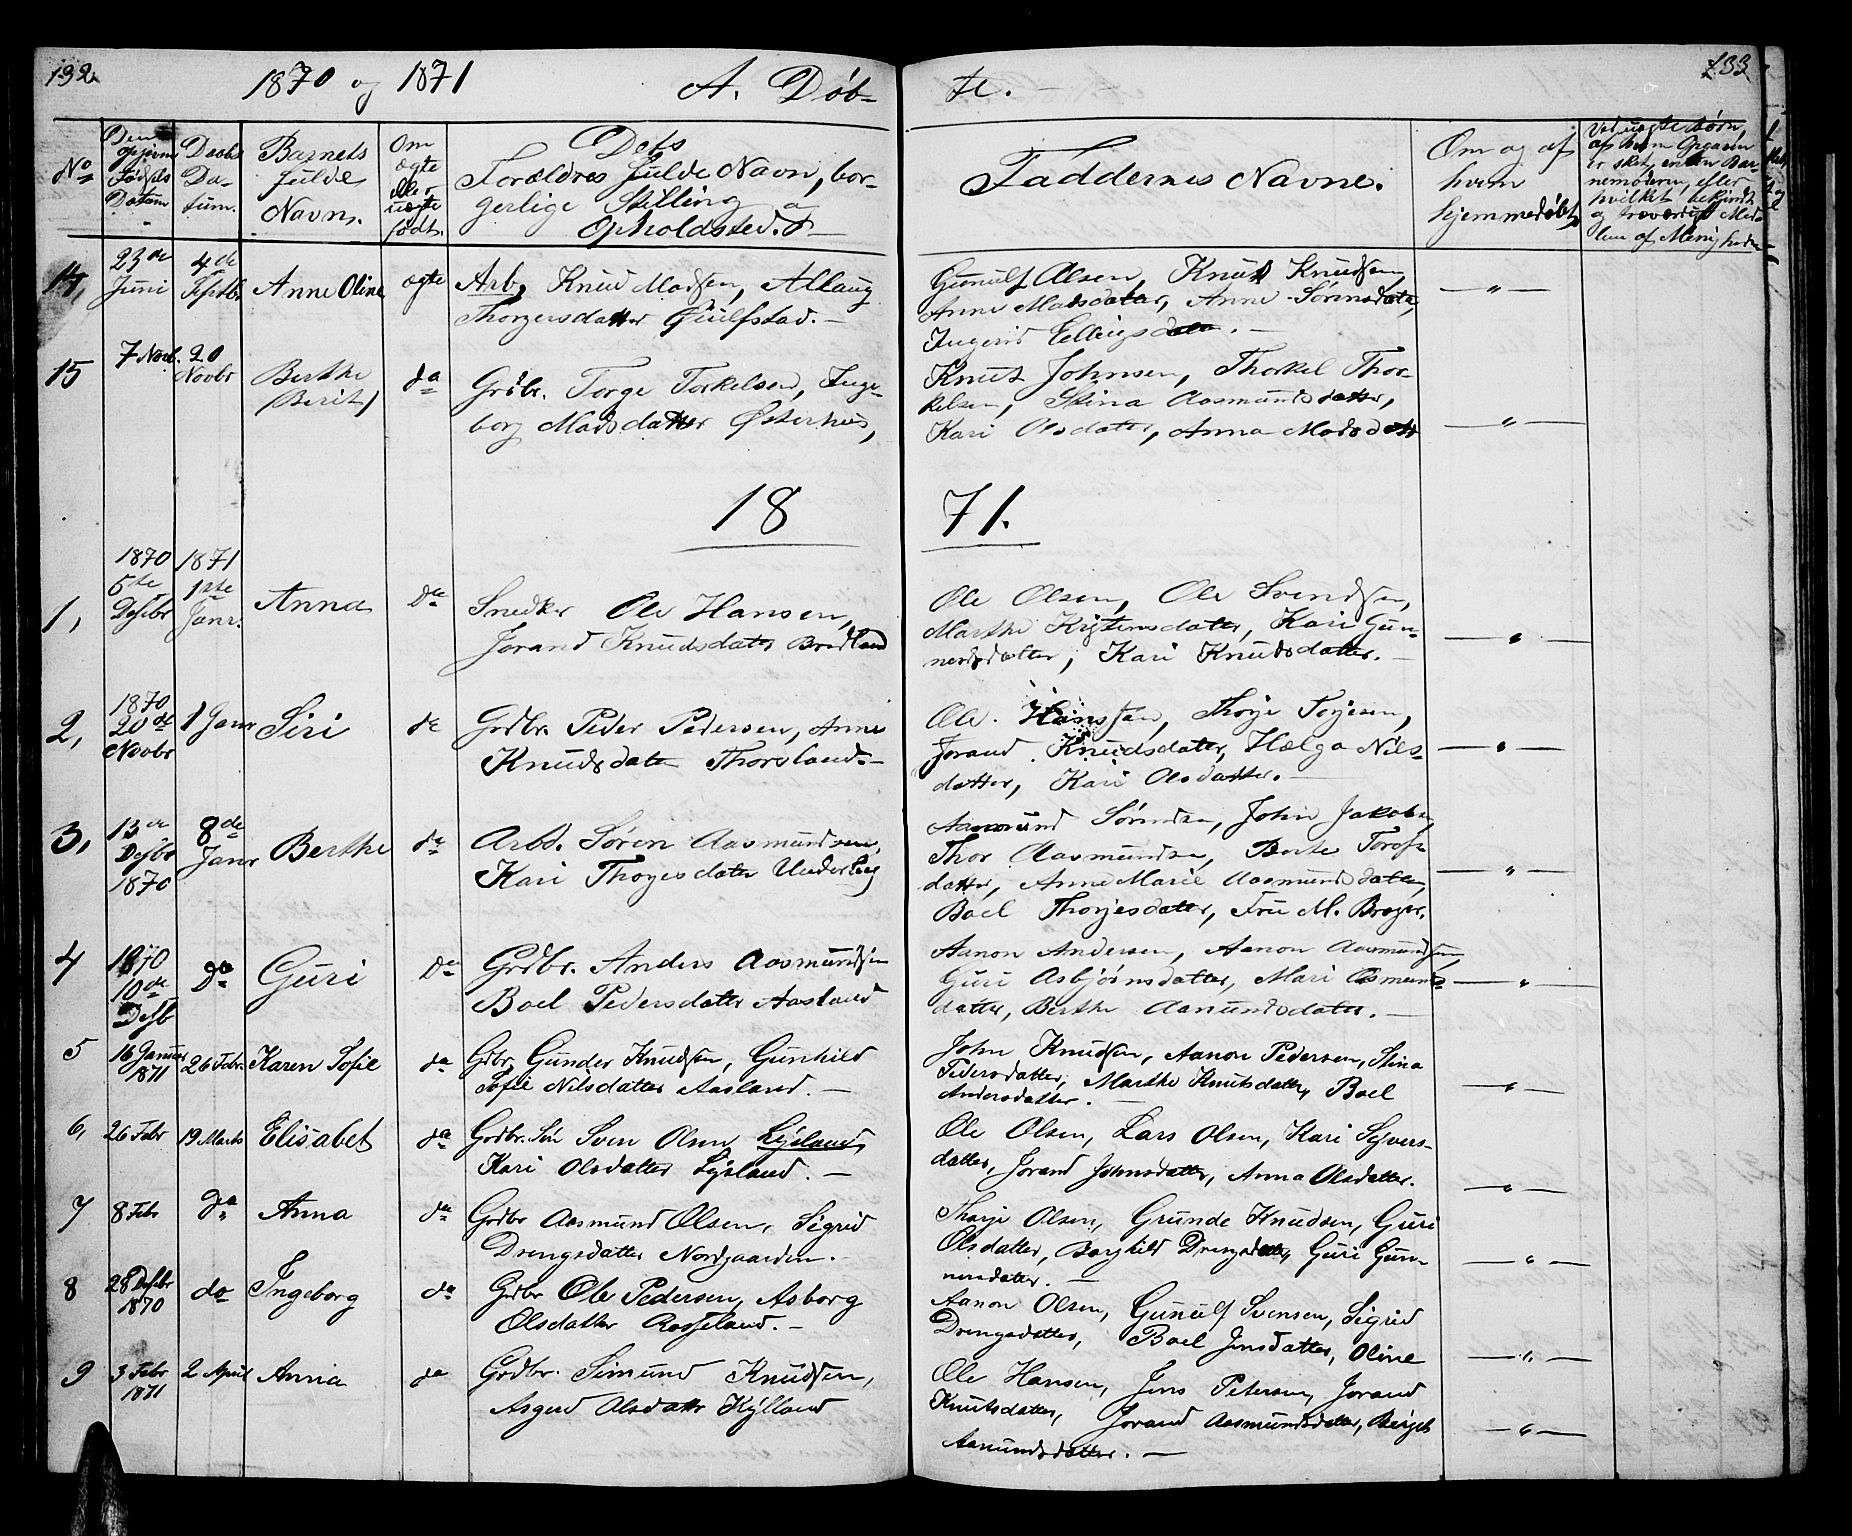 132
1870 og 1871 A. Døb-
te.
133
No
Den
Fødsels
Datum
Daabs
Da-
tum.
Barnets
fulde
Navn.
Om
ægte
eller
uægte
født.
Dets
Forældres fulde Navn, bor-
gerlige Stilling
Opholdsted.
Faddernes Navne.
Om og af
hvem
hjemmedøbt,
Ved uægte børn,
af hvem Opgaven
er sket, enten Bar-
nemoderen, eller
hvilket bekjendt
og troværdigt Med-
lem af Menigheden
14, 23de Juni 4de Septbr Anne Oline ægte Arb. Knud Madsen, Allaug
Thorgersdatter Gulfstad.
Gunulf Olsen, Knud Knudsen,
Anne Madsdatter, Anne Sørensdatter,
Ingerid Ellingsdater.
15 7 Novb. 20 Novbr Berthe (Berit) da Grdbr. Torge Torkelsen, Inge-
borg Madsdatter Østerhus,
Knut Johnsen, Thorkel Thor-
kelsen, Stina Aasmundsdatter,
Kari Olsdatter, Anna Madsdatter
18 71.
1, 1870 5te Desbr 1871 1ste Janr. Anna Da Snedker Ole Hansen,
Jorand Knudsdatter Bredland
Ole Olsen, Ole Svendsen,
Marthe Kristensdatter, Kari Gun-
nersdatter, Kari Knudsdatter.
2, 1870 20de Novbr 1 Janr Siri da Grdbr. Peder Pedersen, Anne
Knudsdatter Thorsland.
Ole Hansen, Thorje Torjesen,
Jorand Knudsdatter, Hælga Nils-
datter, Kari Olsdatter.
3, 13de Desbr 1870 8de Janr Berthe da Arbd. Søren Aasmundsen,
Kari Thorjesdatter Underlieg
Aanmund Sørensen, John Jakobsen,
Thor Aasmundsen, Berte Torofs-
datter, Anne Marie Aasmundsdatter,
Boel Thorjesdatter, Fru M. Breger.
4 1870 10de Desb Da Guri Da Grdbr. Anders Aasmundsen
Boel Pedersdatter Aasland
Aanon Andersen, Aanon Aasmundsen,
Guri Asbjørnsdatter, Mari Osmunds-
datter, Berthe Aanundsdatter.
5 16 Januar 1871 26 Febr. Karen Sofie da Grdbr. Gunder Knudsen, Gunhild
Sofie Nilsdatter Aasland.
John Knudsen, Aanon Pedersen, Stina
Pedersdatter, Marthe Knutsdatter, Boel
Andersdatter.
6, 26 Febr 19 Marts Elisabet da Grdbr. Søn Sven Olsen Lysland,
Kari Olsdatter Lysland.
Ole Olsen, Lars Olsen, Kari Syvers-
datter, Jorand Johnsdatter, Anna Olsdatter.
7 8 Febr da Anna da Grdbr Aasmund Olsen, Sigrid
Drengsdatter Nordgaarden.
Thorje Olsen, Grunde Knudsen, Guri
Olsdatter, Borghild Drengsdatter, Guri Gun-
nersdatter.
8 28 Desbr 1870 do Ingeborg da Grdbr Ole Pedersen, Asborg
Olsdatter Rosseland.
Aanon Olsen, Gunulf Svensen, Sigrid
Drengsdatter, Boel Jensdatter, Oline
9 3 Febr 1871 2 April Anna da Grdbr. Simund Knudsen,
Asgerd Olsdatter Kylland
Ole Hansen, Jens Petersen, Jorand
Knutsdatter, Jorand Aasmundsdatter, Berget
Aanundsdatter.